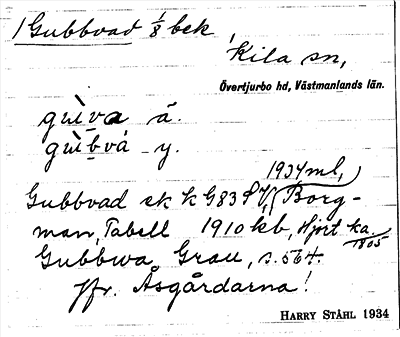 1 Gubbvad 1/8 bek
Kila sn,
Övertjurbo hd, Västmanlands län.
gùìva ä.
gùìbvá y.
1934 ml,
Gubbvad ek k G83 SV, Borg-
man, Tabell 1910 kb, Hjort ka.
1805
Gubbwa Grau, s. 564.
Jfr. Åsgårdarna!
HARRY STÅHL 1934